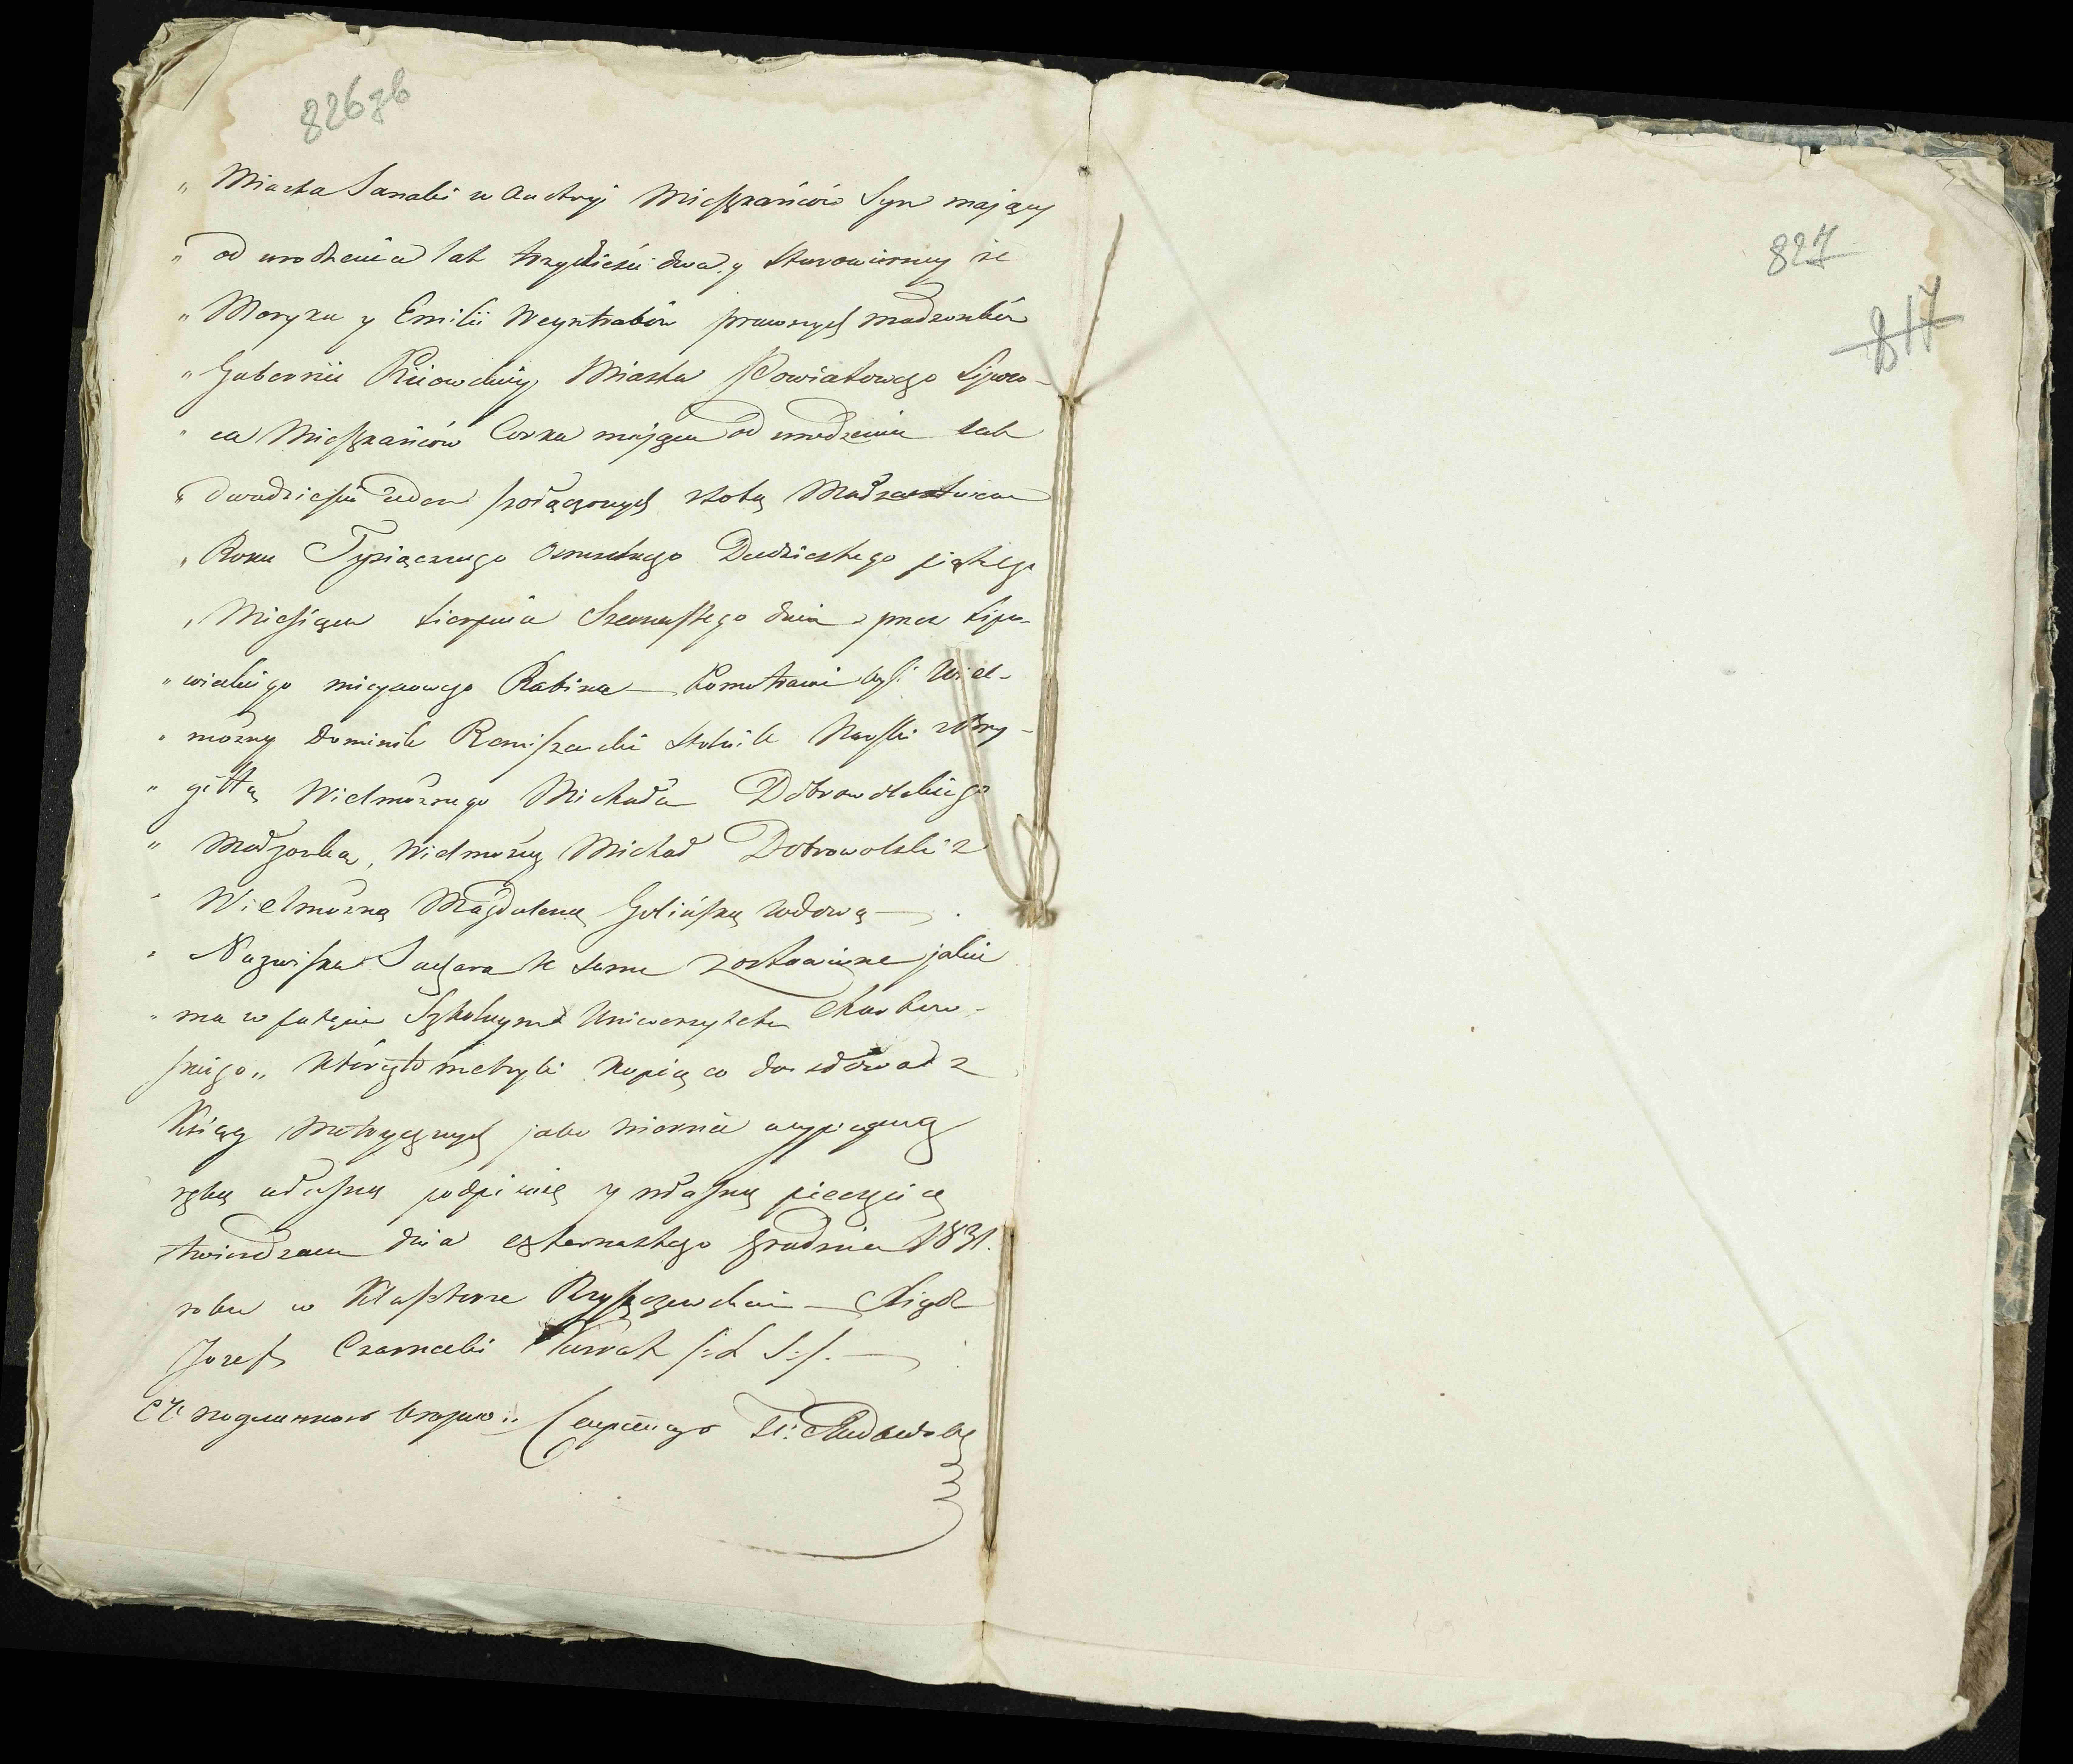 826зв
„ Miasta Sanoki w Austryi Mieszkańców Syn mający
„ od urodzenia lat trzydzieści dwa, y Starowierney że
„ Moryka y Emilii Weyntrabów prawnych madzonków
„ Gubernii Kiiowskiey Miasta Powiatowego Lipow-
„ ca Mieszkańców Corka maiąca od urodzenia lat
„ dwadzieścia ieden połączonych szlobą Madzenstwem
„ Roku Tysiącznego Osmsetnego Dwudziestego piątego
„ Miesiąca Sierpnia Szesnastego dnia przez Lipo-
„ wieckiego mieyscowego Rabina — Kumotrami byli Wiel-
„ możny Dominik Stolnik z Bry-
„ gittą Wielmożnego Michała Dobrowolskiego
„ Małzonką, Wielmożny Michał Dobrowolski z
„ Wielmożną Magdaleną Golińską wdową —
„ Nazwiska te same zostawione jakie
„ ma w patencie Szkolnym Uniwersytetu Charkow-
skiego„ którzyto metryki kopią co do słowa z
Ksiąg Metrycznych jako wiernie wypisaną
ręką własną podpisuię y własną pieczęcią
twierdzam dnia czternastego grudnia 1831.
roku w Klasztorze — Xiądz
Jozef Czarnecki Kurat /: L S :/. —
Съ подлинного верно:
827
817